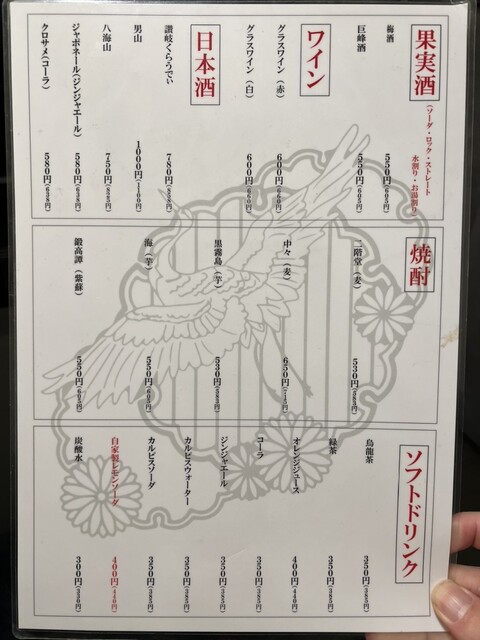 果実酒
（ソーダ・ロック・ストレート
水割り・お湯割り）
梅酒 550円（605円）
巨峰酒 550円（605円）
ワイン
グラスワイン（赤） 600円（660円）
グラスワイン（白） 600円（660円）
日本酒
讃岐くらうでぃ 780円（858円）
男山 1000円（1100円）
八海山 750円（825円）
ジャポネール（ジンジャエール） 580円（638円）
クロサメ（コーラ） 580円（638円）
焼酎
二階堂（麦） 530円（583円）
中々（麦） 650円（715円）
黒霧島（芋） 530円（583円）
海（芋） 550円（605円）
鍛高譚（紫蘇） 550円（605円）
ソフトドリンク
烏龍茶 350円（385円）
緑茶 350円（385円）
オレンジジュース 400円（440円）
コーラ 350円（385円）
ジンジャエール 350円（385円）
カルピスウォーター 350円（385円）
カルピスソーダ 350円（385円）
自家製レモンソーダ 400円（440円）
炭酸水 300円（330円）